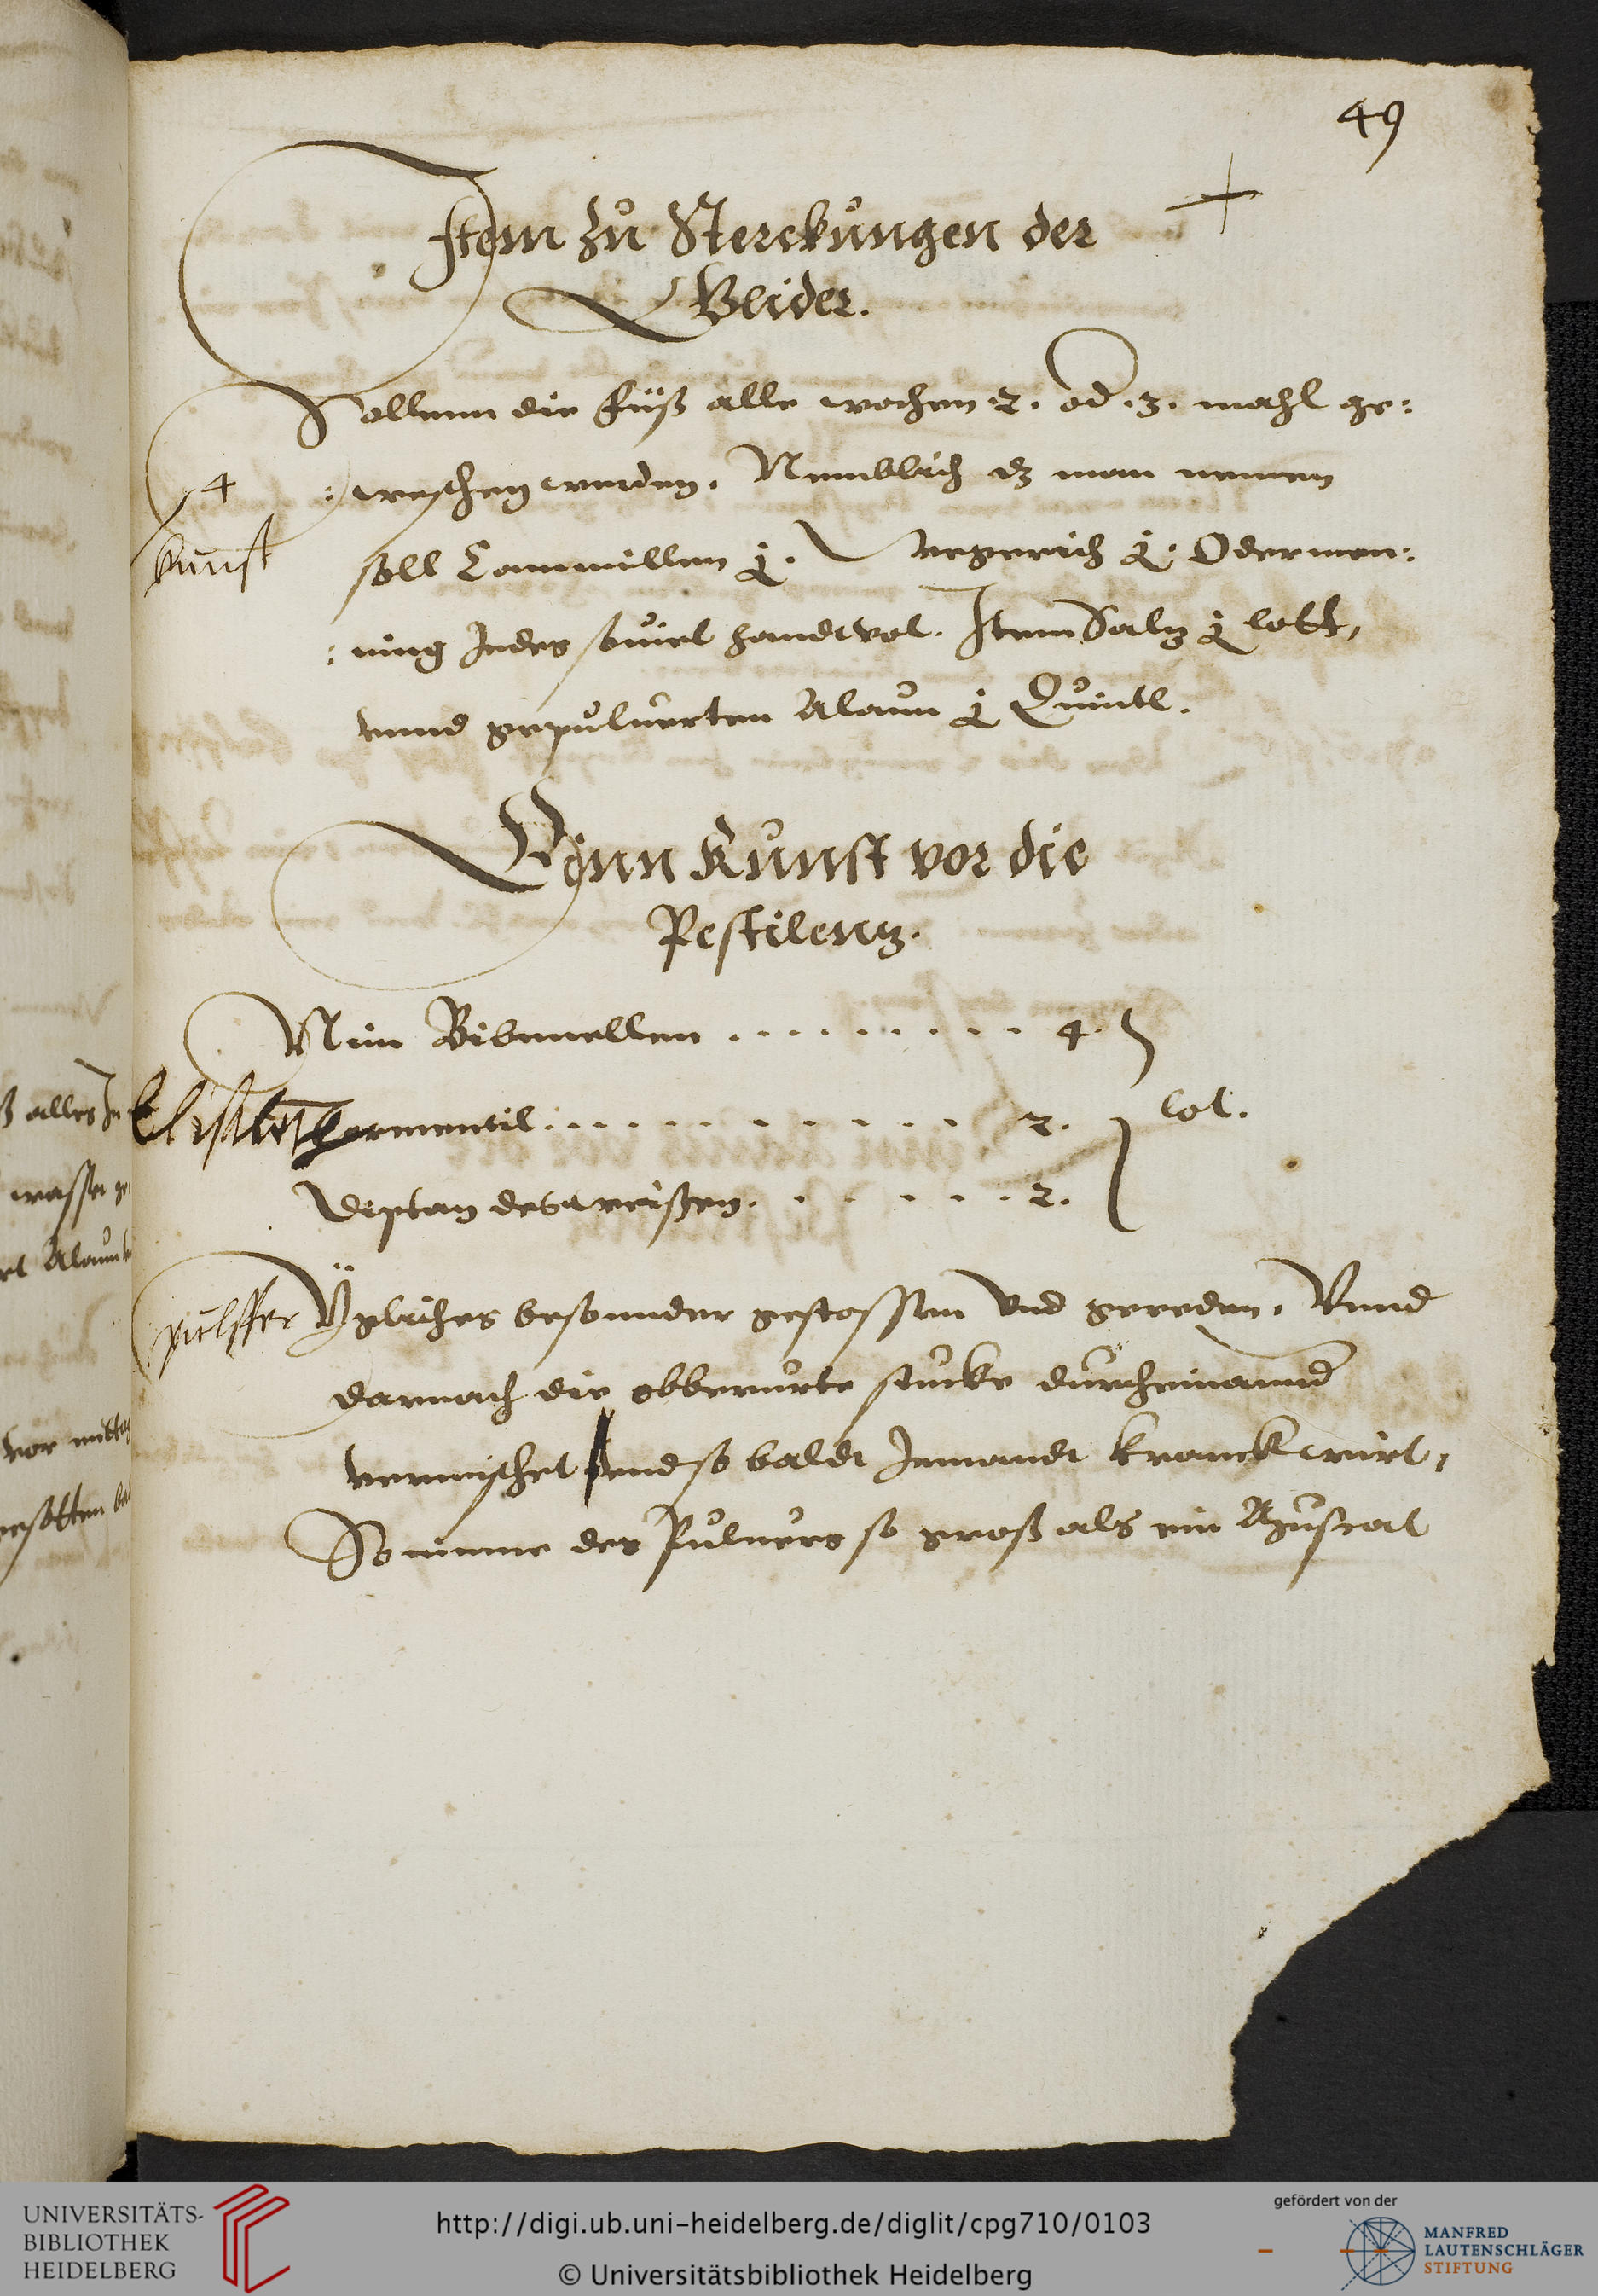 49
Item zu Sterckungen der
Glider.
Sollenn die füß alle wochen .2. od .3. mahl ge:
:weschen werden. Nemblich dz man nemen
soll Cammillen j. Wegerich j. Odermen:
:ning Jedes souiel handtvol. Item Saltz j lott,
vnnd gepuluerten Alaun j Quintl.
4
kunst
Einn Kunst vor die
Pestilentz.
Nim Bibenellen ......... 4.
Tormentil ......... 2. lot.
Diptan des weissen ...... 2.
pulffer
Ygliches besonnder gestossen vnd gereden. Vnnd
darnach die obberurte stucke durcheinannd
vermischet vnd so baldt Jemandt kranck wirt,
So nimme des Puluers so groß als ein Muscat
ß alles In
wasser ge
rt Alaun
vor mittag
UNIVERSITÄTS-
BIBLIOTHEK
HEIDELBERG
http://digi.ub.uni-heidelberg.de/diglit/cpg710/0103
© Universitätsbibliothek Heidelberg
gefördert von der
MANFRED
LAUTENSCHLÄGER
STIFTUNG